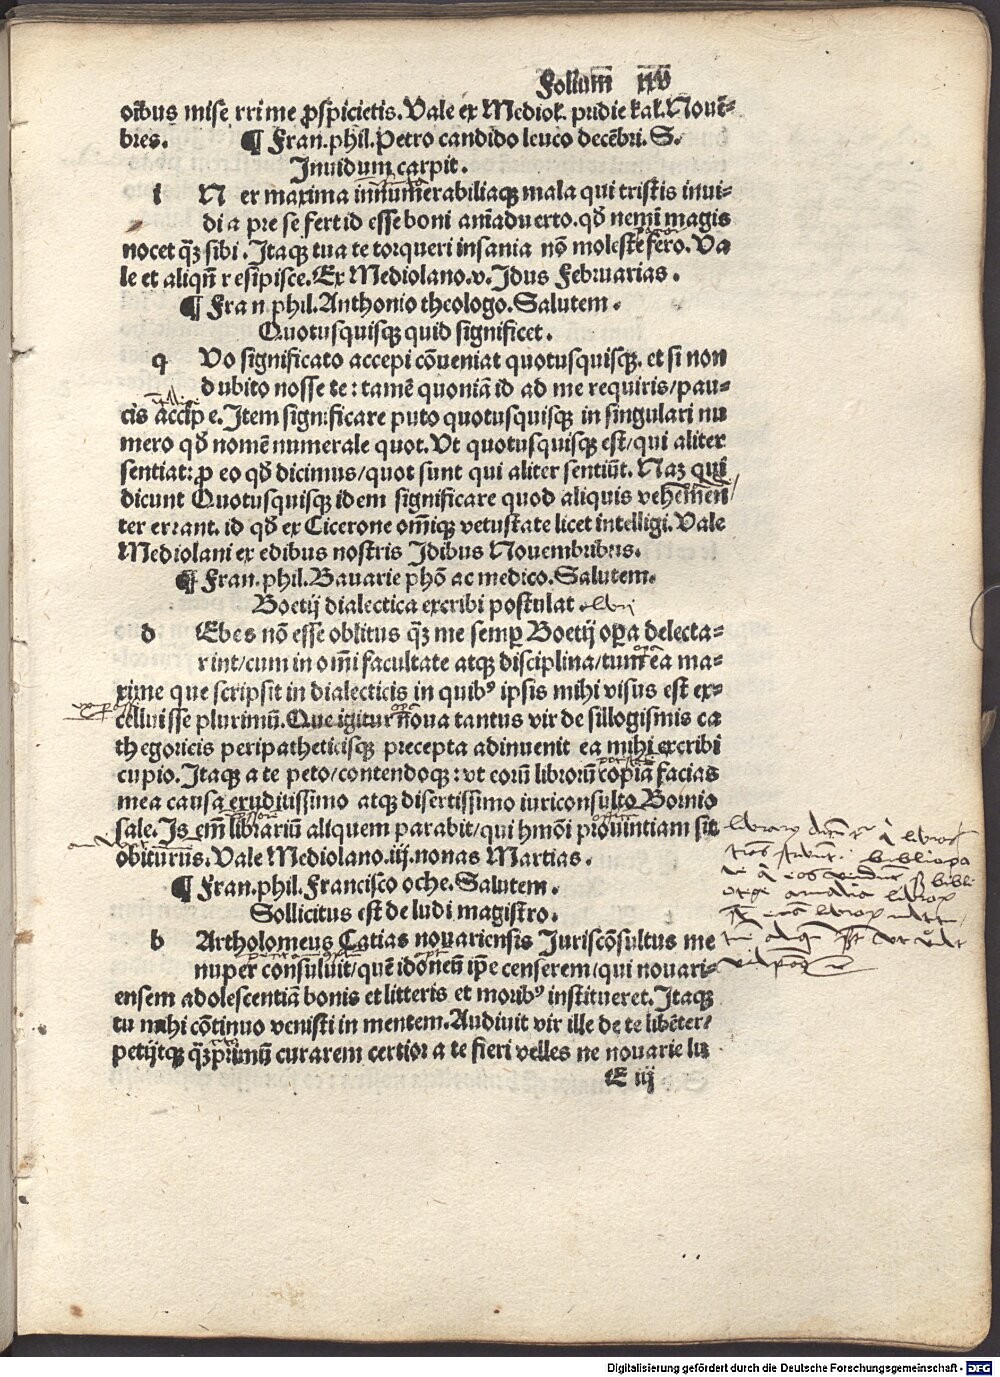 Folium xxv
oībus mise rrime ꝓspicietis. Vale ex Mediol. pridie kal. Nouē=
bres. ¶ Fran. phil. Petro candido leuco decēbri. S.
Inuidum carpit.
i N er maxima innumerabiliaqꝫ mala qui tristis inui=
di a pre se fert id esse boni aīaduerto. qd̄ nemī magis
nocet qꝫ̄ sibi. Itaqꝫ tua te torqueri insania nō moleste fero. Va
le et aliqn̄ r esipisce. Ex Mediolano. v. Idus Februarias.
¶ Fra n phil. Anthonio theologo. Salutem.
Quotusquisqꝫ quid significet.
q Vo significato accepi cōueniat quotusquisqꝫ. et si non
d ubito nosse te: tamē quoniā id ad me requiris/pau=
cis accip e. Item significare puto quotusquisqꝫ in singulari nu
mero qd̄ nomē numerale quot. Vt quotusquisqꝫ est/qui aliter
sentiat: ꝓ eo qd̄ dicimus/quot sunt qui aliter sentiūt. Naꝫ qui
dicunt Quotusquisqꝫ idem significare quod aliquis vehemen/
ter errant. id qd̄ ex Cicerone om̄iqꝫ vetustate licet intelligi. Vale
Mediolani ex edibus nostris Idibus Nouembribus.
¶ Fran. phil. Bauarie phō ac medico. Salutem.
Boetij dialectica excribi postulat
d Ebes nō esse oblitus qꝫ̄ me semꝑ Boetij oꝑa delecta=
r int/cum in om̄i facultate atqꝫ disciplina/tum ea ma=
xime que scripsit in dialecticis in quibꝰ ipsis mihi visus est ex=
celluisse plurimū. Que igitur noua tantus vir de sillogismis ca
thegoricis peripatheticisqꝫ precepta adinuenit ea mihi excribi
cupio. Itaqꝫ a te peto/contendoqꝫ: vt eorū librorū copiā facias
mea causa eruditissimo atqꝫ disertissimo iuriconsulto Bornio
sale. Is em̄ librariū aliquem parabit/qui hmōi prouintiam sit
obiturus. Vale Mediolano. iij. nonas Martias.
¶ Fran. phil. Francisco oche. Salutem.
Sollicitus est de ludi magistro.
b Artholomeus Catias nouariensis Juriscōsultus me
nuper consuluit/quē idoneū ip̄e censerem/qui nouari=
ensem adolescentiā bonis et litteris et moribꝰ institueret. Itaqꝫ
tu mihi cōtinuo venisti in mentem. Audiuit vir ille de te libēter/
petijtqꝫ qꝫ̄primū curarem certior a te fieri velles ne nouarie lu
E iij
Digitalisierung gefördert durch die Deutsche Forschungsgemeinschaft - DFG